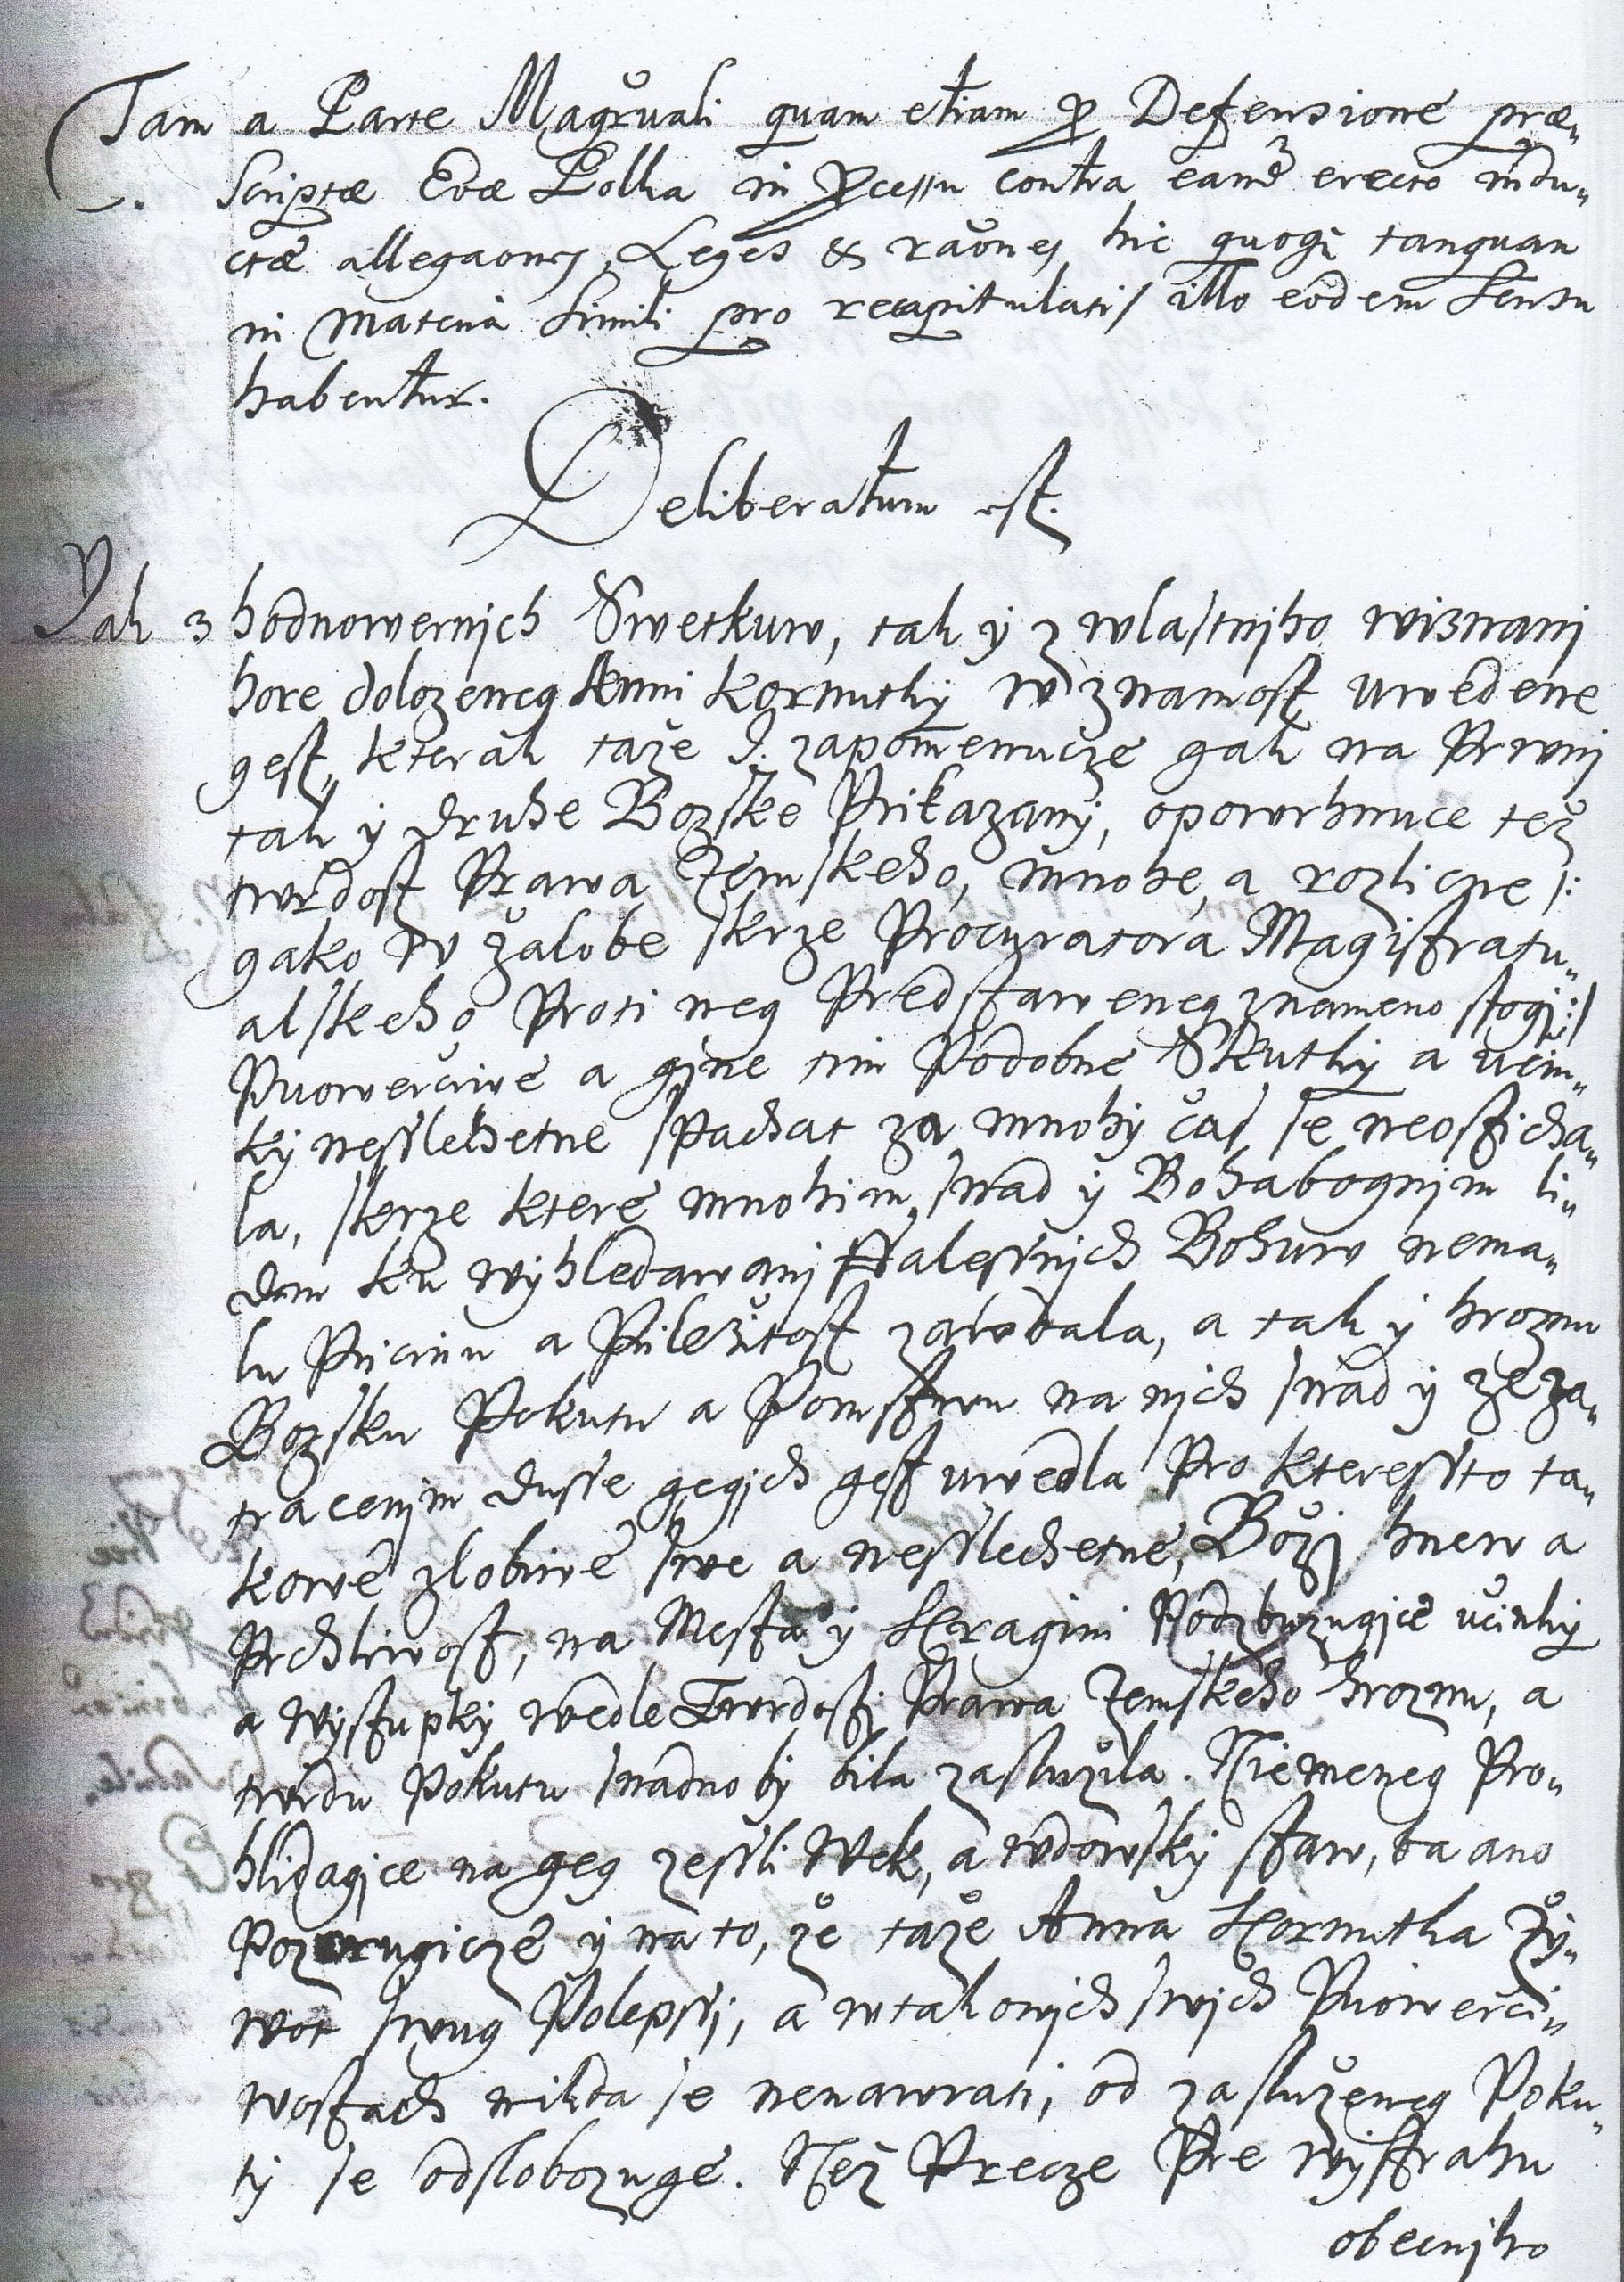 Tam a Parte Magrŭali quam etiam p Defensione præ„
Scriptæ Evæ Polka in Pcessu contra eand erecto indu„
ctæ allegaones, Leges & raones, hic quoq tanquam
in materia simili pro recapitulatis illo eodem sensu
habentur.
Deliberatum est.
Yak z hodnowernjch Swetkuw, tak y z wlastnjho wiznanj
hore dolozeneg Anni Kormutky w znamost uwedene
gest, kterak taže J. zapomenucze gak na Prwnj
tak y druhe Bozske Prikazany, opowrhnuce též
twrdost Prawa Zemskeho, mnohe, a rozlicne /:
gako w žalobe skrze Procuratora Magistratu„
alskeho Proti neg Predstaweneg znameno stogj:/
Puowerčiwe a gine tim Podobne Skutky a učin„
ky nesslechetne Spachat za mnohy čas se neosticha„
la, skrze které mnohim, snad y Bohabognjm li„
dem ku wyhledawanj Falessnjch Bohuw nema„
lu Pricinu a Priležitost zawdala, a tak y hroznu
Bozsku Pokutu a Pomstwu na nich snad y ze za„
tracenjm dusse gegjch gest uwedla Pro kteressto ta„
kowé zlobiwé swe a nesslechetné, Božj hnew a
Prchliwost, na Mesta y Kragini Podzbuzugjce učinky
a wystupky wedle Twrdosti Prawa Zemskeho hroznu, a
twrdu Pokutu snadno by bila zasluzila. Niemeneg Pro„
hlidagjce na geg zessli Wek, a wdowsky staw, ba ano
Pozorugicze y na to, že taže Anna Kormutka Ži„
wot swug Polepssi, a w takowjch swjch Puowerči„
wostach nikda se nenawrati, od zasluženeg Poku„
ty se odslobozuge. Než Precze Pre wystrahu
obecnjho